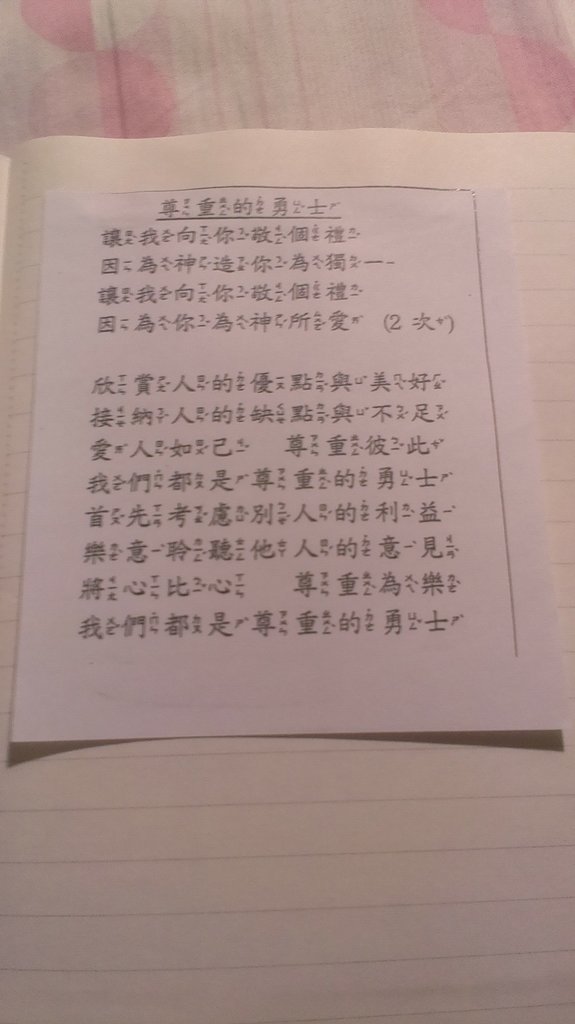 尊重的勇士
讓我向你敬個禮
因為神造你為獨一
讓我向你敬個禮
因為你為神所愛 (2 次)
欣賞人的優點與美好
接納人的缺點與不足
愛人如己 尊重彼此
我們都是尊重的勇士
首先考慮別人的利益
樂意聆聽他人的意見
將心比心 尊重為樂
我們都是尊重的勇士